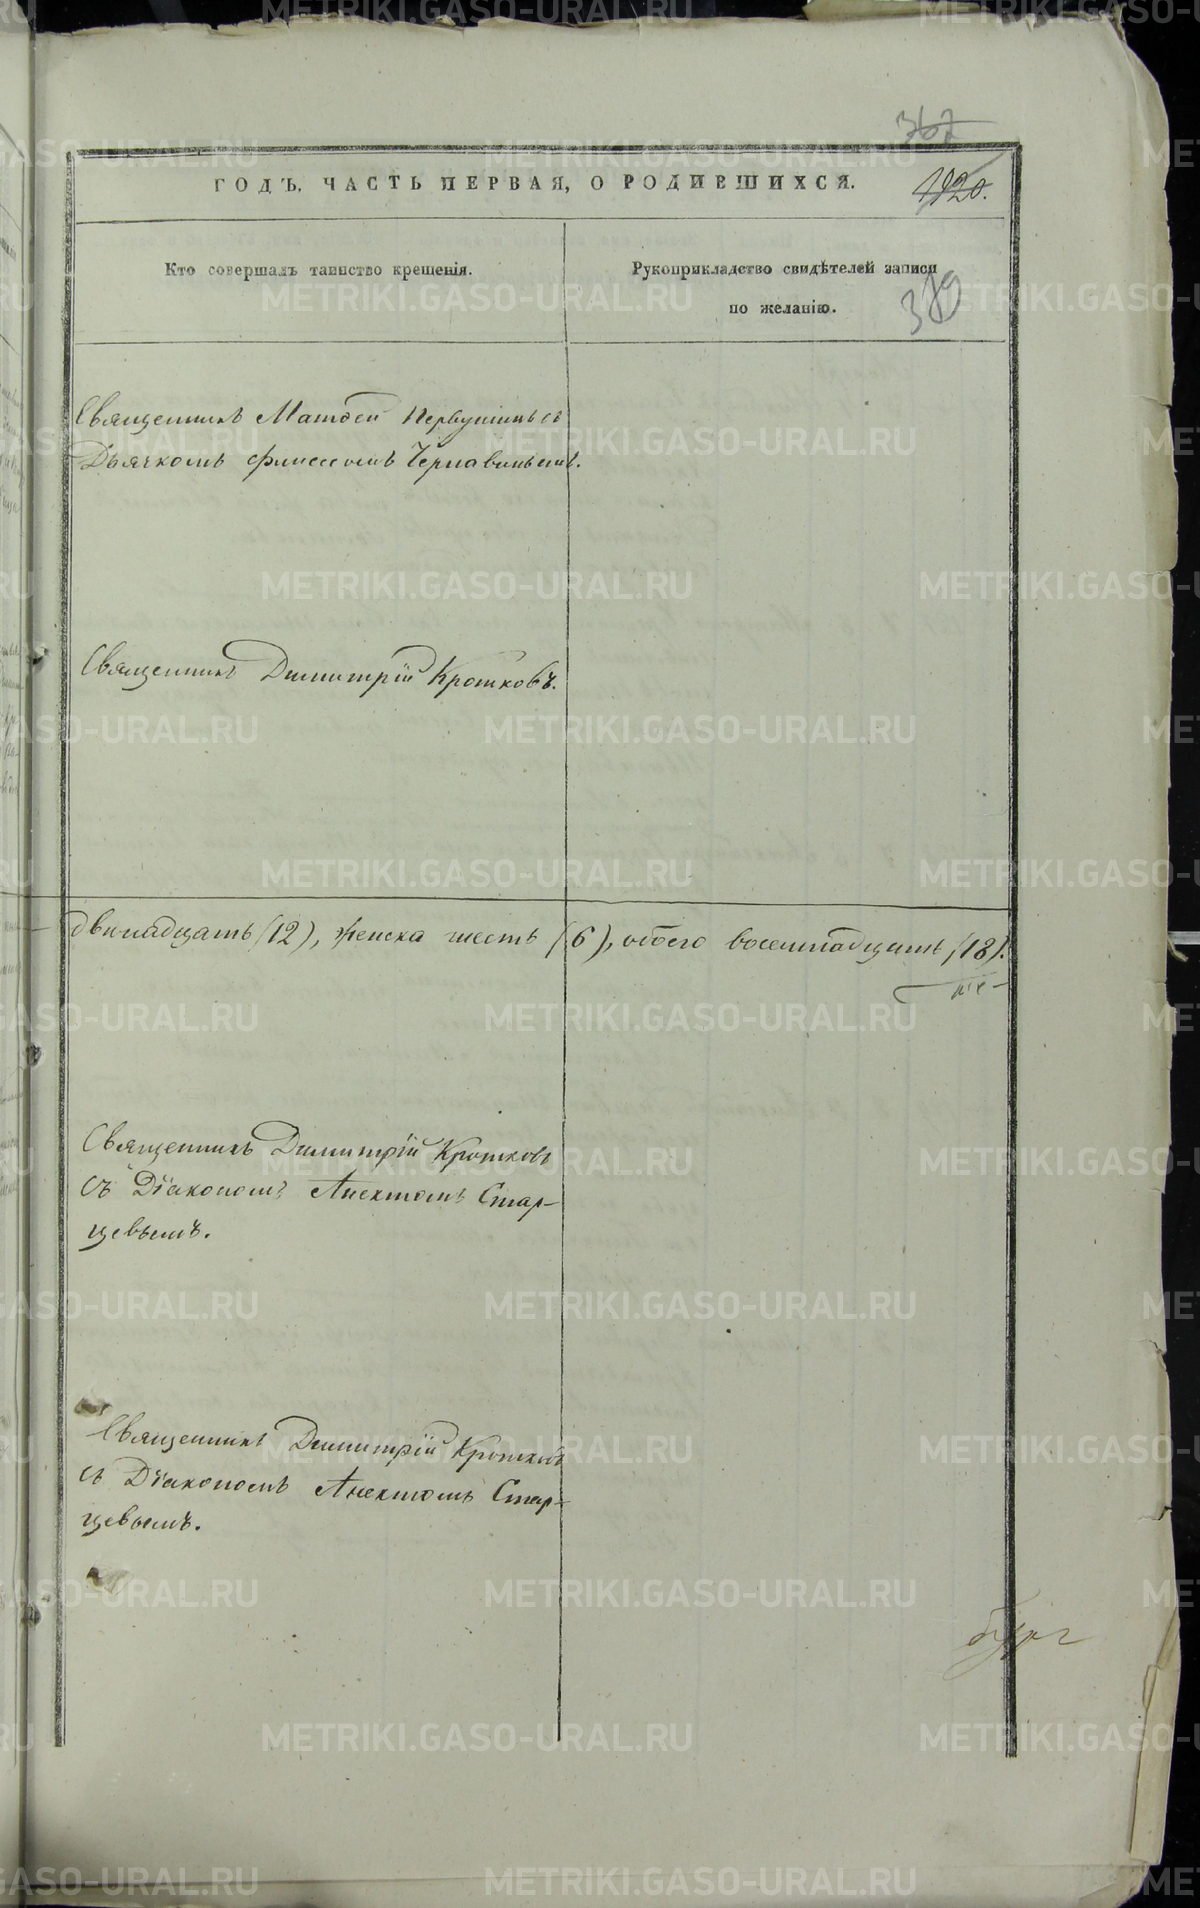 367
ГОДЪ. ЧАСТЬ ПЕРВАЯ, О РОДИВШИХСЯ.
1120.
Кто совершалъ таинство крещенія.
Рукоприкладство свидѣтелей записи
по желанію.
389
Священникъ Матѳей Первушинъ съ
Дьячкомъ Чернавинымъ.
Священникъ Димитрій Кротковъ.
двѣнадцать (12), женска шесть (6), обоего восемнадцать (18).
Священникъ Димитрій Кротковъ
съ Діакономъ Анектомъ Стар-
цевымъ.
Священникъ Димитрій Кротковъ
съ Діакономъ Анектомъ Стар-
цевымъ.
METRIKI.GASO-URAL.RU